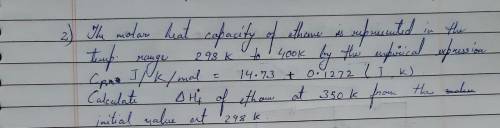 2) The molar heat capacity of ethane is represented in the
temp. range 298 k to 400k by the empirical expression
J/k/mol = 14.73 + 0.1272 (T k)
Calculate ΔH°f of ethane at 350k from the
initial value at 298k